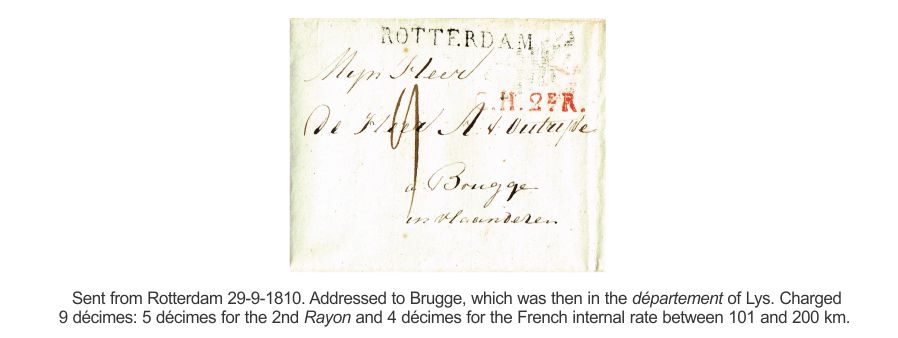 ROTTERDAM
Mijn Heer
.H. 2E R.
De Heer A. d'Outryve
9
a Brugge
in vlaanderen
Sent from Rotterdam 29-9-1810. Addressed to Brugge, which was then in the département of Lys. Charged
9 décimes: 5 décimes for the 2nd Rayon and 4 décimes for the French internal rate between 101 and 200 km.